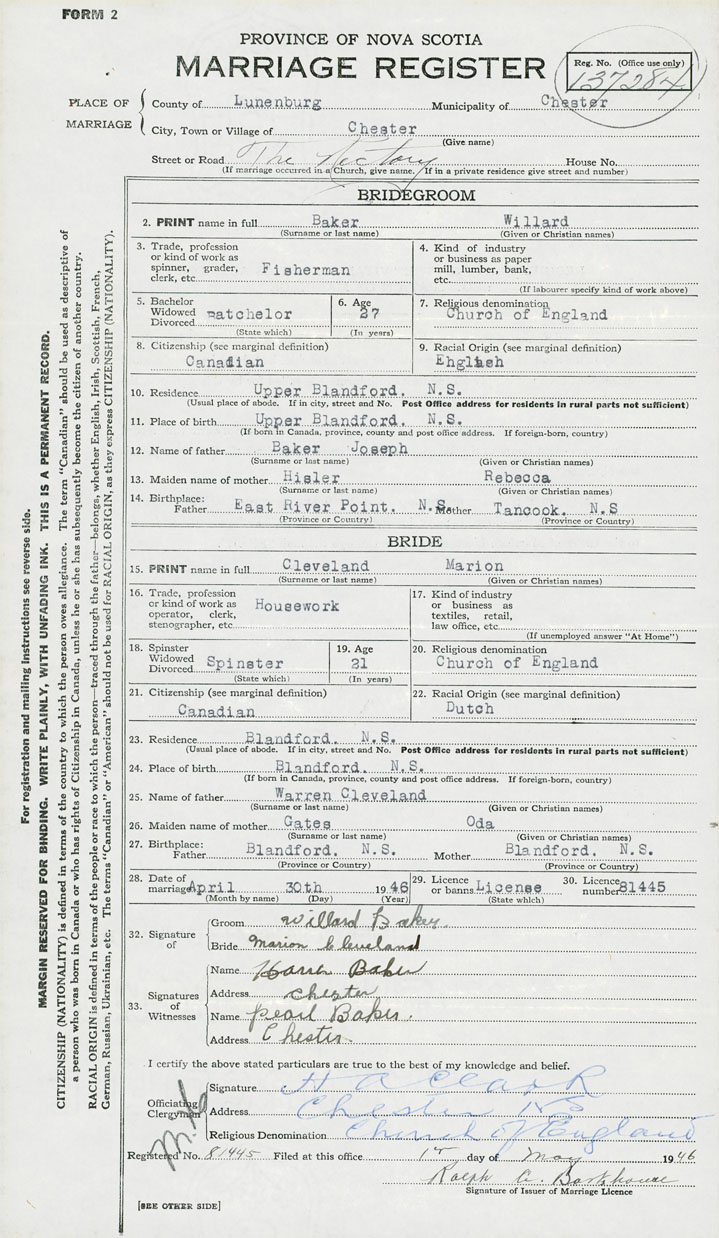 FORM 2
PROVINCE OF NOVA SCOTIA
MARRIAGE REGISTER
Reg. No. (Office use only)
137284
PLACE OF MARRIAGE
County of Lunenburg Municipality of Chester
City, Town or Village of Chester
(Give name)
Street or Road The Rectory House No.
(If marriage occurred in a Church, give name. If in a private residence give street and number)
BRIDEGROOM
2. PRINT name in full Baker Willard
(Surname or last name) (Given or Christian names)
3. Trade, profession or kind of work as spinner, grader, clerk, etc. Fisherman
4. Kind of industry or business as paper mill, lumber, bank, etc.
(If labourer specify kind of work above)
5. Bachelor Widowed Divorced Batchelor
(State which)
6. Age 27
(In years)
7. Religious denomination
Church of England
8. Citizenship (see marginal definition)
Canadian
9. Racial Origin (see marginal definition)
English
10. Residence Upper Blandford. N.S.
(Usual place of abode. If in city, street and No. Post Office address for residents in rural parts not sufficient)
11. Place of birth Upper Blandford. N.S.
(If born in Canada, province, county and post office address. If foreign-born, country)
12. Name of father Baker Joseph
(Surname or last name) (Given or Christian names)
13. Maiden name of mother Hisler Rebecca
(Surname or last name) (Given or Christian names)
14. Birthplace: Father East River Point. N.S. Mother Tancook. N.S
(Province or Country) (Province or Country)
BRIDE
15. PRINT name in full Cleveland Marion
(Surname or last name) (Given or Christian names)
16. Trade, profession or kind of work as operator, clerk, stenographer, etc. Housework
17. Kind of industry or business as textiles, retail, law office, etc.
(If unemployed answer "At Home")
18. Spinster Widowed Divorced Spinster
(State which)
19. Age 21
(In years)
20. Religious denomination
Church of England
21. Citizenship (see marginal definition)
Canadian
22. Racial Origin (see marginal definition)
Dutch
23. Residence Blandford. N.S.
(Usual place of abode. If in city, street and No. Post Office address for residents in rural parts not sufficient)
24. Place of birth Blandford. N.S.
(If born in Canada, province, county and post office address. If foreign-born, country)
25. Name of father Warren Cleveland
(Surname or last name) (Given or Christian names)
26. Maiden name of mother Gates Oda
(Surname or last name) (Given or Christian names)
27. Birthplace: Father Blandford. N.S. Mother Blandford. N.S.
(Province or Country) (Province or Country)
28. Date of marriage April 30th 1946
(Month by name) (Day) (Year)
29. Licence or banns License
(State which)
30. Licence number 81445
32. Signature of
Groom Willard Baker.
Bride Marion Cleveland
33. Signatures of Witnesses
Name Baker
Address Chester
Name Pearl Baker.
Address Chester
I certify the above stated particulars are true to the best of my knowledge and belief.
Officiating Clergyman
Signature H A Clark
Address Chester NS
Religious Denomination Church of England
Registered No. 81445 Filed at this office 1st day of May 1946
Ralph
Signature of Issuer of Marriage Licence
[SEE OTHER SIDE]
For registration and mailing instructions see reverse side.
MARGIN RESERVED FOR BINDING. WRITE PLAINLY, WITH UNFADING INK. THIS IS A PERMANENT RECORD.
CITIZENSHIP (NATIONALITY) is defined in terms of the country to which the person owes allegiance. The term "Canadian" should be used as descriptive of
a person who was born in Canada or who has rights of Citizenship in Canada, unless he or she has subsequently become the citizen of another country.
RACIAL ORIGIN is defined in terms of the people or race to which the person—traced through the father—belongs, whether English, Irish, Scottish, French,
German, Russian, Ukrainian, etc. The terms "Canadian" or "American" should not be used for RACIAL ORIGIN, as they express CITIZENSHIP (NATIONALITY).